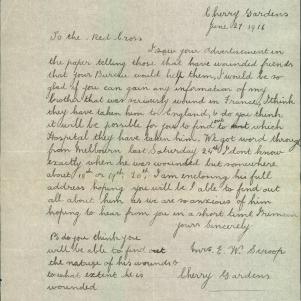 Cherry Gardens
June 27 1916
To the Red Cross
I saw your Advertisement in
the paper telling those that have wounded friends
that your Bureau would help them, I would be so
glad if you can gain any information of my
brother that was seriously wound in France, I think
they have taken him to England, & do you think
it will be possible for you to find out which
Hospital they have taken him. We got word through
from Melbourn last Saturday 24th I dont know
exactly when he was wounded but somewhere
about 18th or 19th 20th I am enclosing his full
address hoping you will be able to find out
all about him as we are so anxious of him
hoping to hear from you in a short time I remain
yours Sincerely
Ps do you think you
will be able to find out
the nature of his wounds &
to what extent he is
wounded
Mrs. E. W.
Cherry Gardens